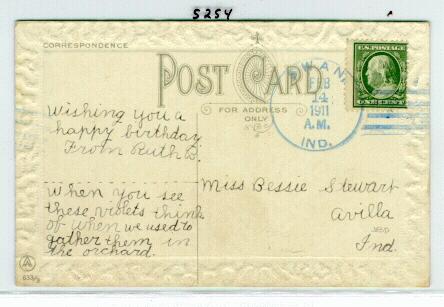 5254
CORRESPONDENCE
POST CARD
FOR ADDRESS
ONLY
SWAN
FEB
14
1911
A.M.
IND.
U.S. POSTAGE
ONE CENT
Wishing you a
happy birthday
From Ruth B.
When you see
these violets think
of when we used to
gather them in
the orchard.
Miss Bessie Stewart
Avilla
Ind.